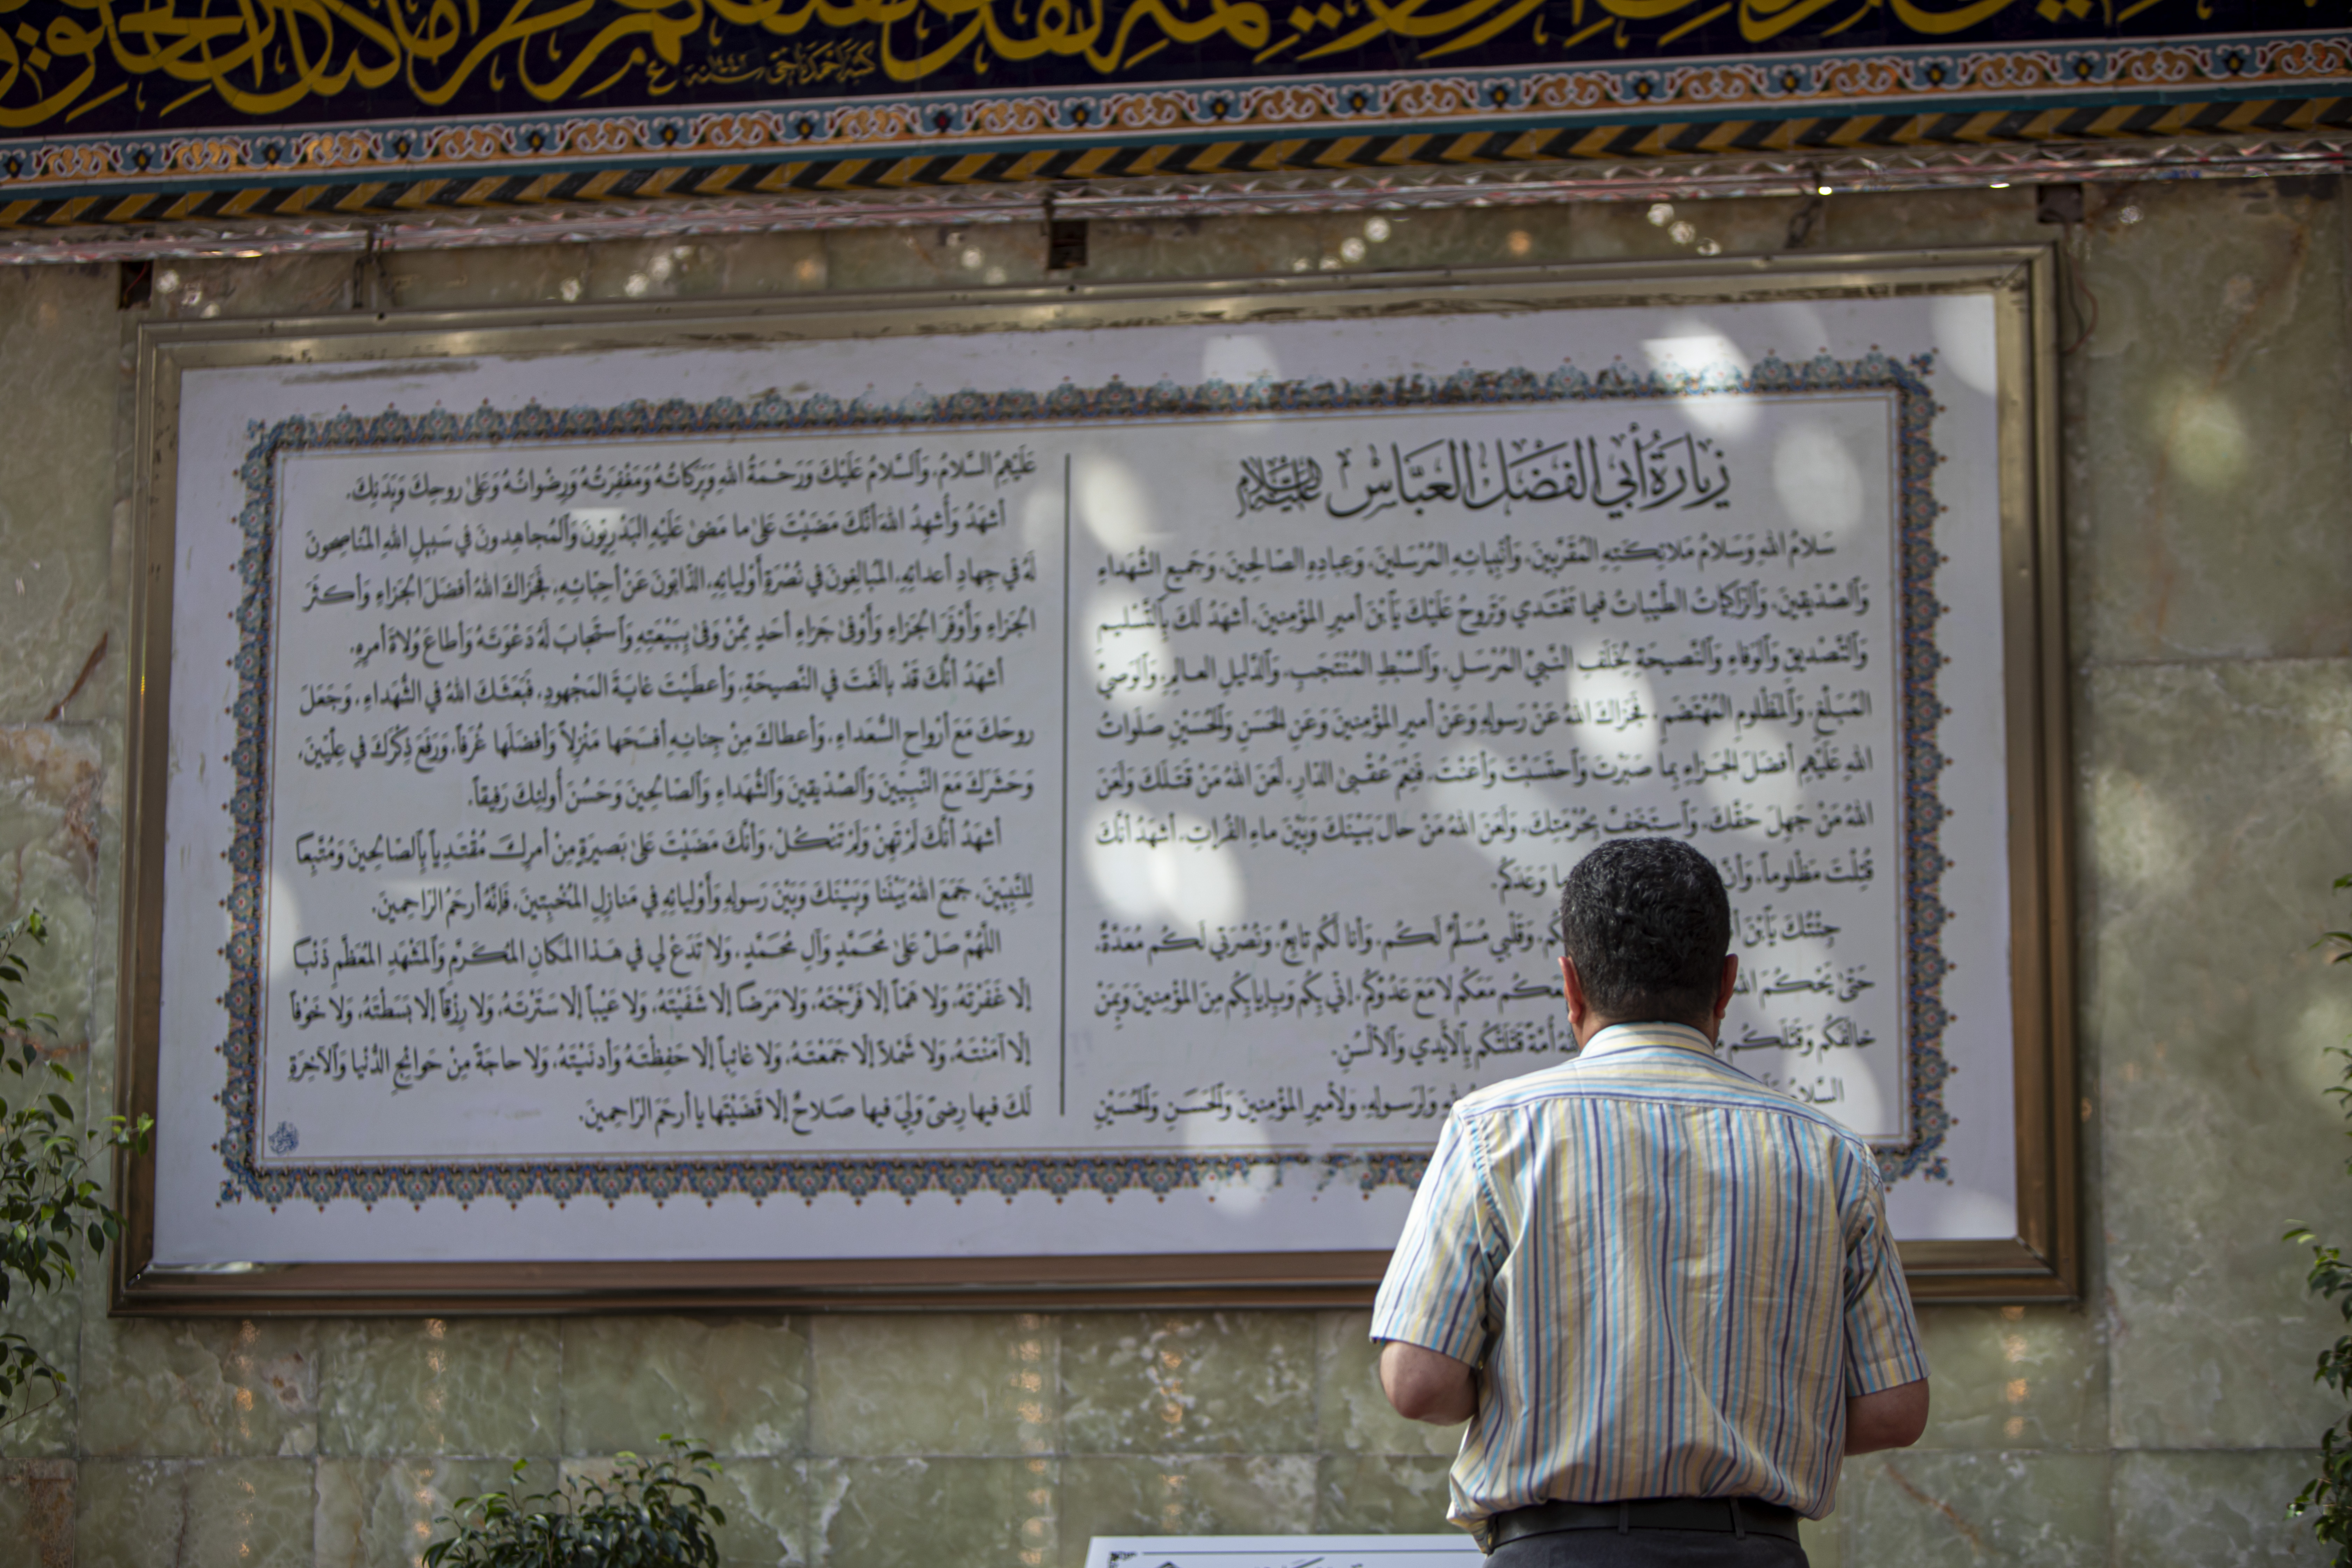 كتبه أحمد ناجي سنة
زيارة أبي الفضل العبّاس عليه السلام
سَلامُ اللهِ وَسَلامُ مَلائِكَتِهِ المُقَرَّبينَ، وَأَنْبِيائِهِ المُرْسَلينَ، وَعِبادِهِ الصّالِحينَ، وَجَميعِ الشُّهَداءِ
وَٱلصِّدّيقينَ، وَٱلزّاكِياتُ الطَّيِّباتُ فيما تَغْتَدي وَتَروحُ عَلَيْكَ يَٱبْنَ أميرِ المُؤْمِنينَ، أشهَدُ لَكَ بِٱلتَّسْليمِ
وَٱلتَّصْديقِ وَٱلوَفاءِ وَٱلنَّصيحَةِ لِخَلَفِ النَّبِيِّ المُرْسَلِ، وَٱلسِّبْطِ المُنْتَجَبِ، وَٱلدَّليلِ العالِمِ، وَٱلوَصِيِّ
المُبَلِّغِ، وَٱلمَظْلومِ المُهْتَضَمِ، فَجَزاكَ اللهُ عَنْ رَسولِهِ وَعَنْ أميرِ المُؤْمِنينَ وَعَنِ الحَسَنِ وَٱلحُسَيْنِ صَلَواتُ
اللهِ عَلَيْهِم أفضَلَ الجَزاءِ بِما صَبَرْتَ وَٱحتَسَبْتَ وَأعَنْتَ، فَنِعْمَ عُقْبىٰ الدّارِ، لَعَنَ اللهُ مَنْ قَتَلَكَ وَلَعَنَ
اللهُ مَنْ جَهِلَ حَقَّكَ، وَٱستَخَفَّ بِحُرْمَتِكَ، وَلَعَنَ اللهُ مَنْ حالَ بَيْنَكَ وَبَيْنَ ماءِ الفُراتِ، أشهَدُ أنَّكَ
قُتِلْتَ مَظْلوماً، وَأنَّ ما وَعَدَكُم.
جِئْتُكَ يَٱبْنَ وَقَلْبي مُسَلِّمٌ لَكُم، وَأنا لَكُم تابِعٌ، وَنُصْرَتي لَكُم مُعَدَّةٌ،
حَتّىٰ يَحْكُمَ مَعَكُم لا مَعَ عَدُوِّكُم، إنّي بِكُم وَبِإيابِكُم مِنَ المُؤْمِنينَ وَبِمَنْ
خالَفَكُم وَقَتَلَكُم أُمَّةً قَتَلَتْكُم بِٱلأيْدي وَٱلألْسُنِ.
السَّلامُ وَلِرَسولِهِ، وَلأميرِ المُؤْمِنينَ وَٱلحَسَنِ وَٱلحُسَيْنِ
عَلَيْهِمُ السَّلامُ، وَٱلسَّلامُ عَلَيْكَ وَرَحْمَةُ اللهِ وَبَرَكاتُهُ وَمَغْفِرَتُهُ وَرِضْوانُهُ وَعَلىٰ روحِكَ وَبَدَنِكَ.
أشهَدُ وَأُشهِدُ اللهَ أنَّكَ مَضَيْتَ عَلىٰ ما مَضىٰ عَلَيْهِ البَدْرِيّونَ وَٱلمُجاهِدونَ في سَبيلِ اللهِ المُناصِحونَ
لَهُ في جِهادِ أعدائِهِ، المُبالِغونَ في نُصْرَةِ أوْلِيائِهِ، الذّابّونَ عَنْ أحِبّائِهِ، فَجَزاكَ اللهُ أفضَلَ الجَزاءِ وَأكثَرَ
الجَزاءِ وَأوْفَرَ الجَزاءِ وَأوْفىٰ جَزاءِ أحَدٍ مِمَّنْ وَفىٰ بِبَيْعَتِهِ وَٱستَجابَ لَهُ دَعْوَتَهُ وَأطاعَ وُلاةَ أمرِهِ.
أشهَدُ أنَّكَ قَدْ بالَغْتَ في النَّصيحَةِ، وَأعطَيْتَ غايَةَ المَجْهودِ، فَبَعَثَكَ اللهُ في الشُّهَداءِ، وَجَعَلَ
روحَكَ مَعَ أرْواحِ السُّعَداءِ، وَأعطاكَ مِنْ جِنانِهِ أفسَحَها مَنْزِلاً وَأفضَلَها غُرَفاً، وَرَفَعَ ذِكْرَكَ في عِلِّيّينَ،
وَحَشَرَكَ مَعَ النَّبِيّينَ وَٱلصِّدّيقينَ وَٱلشُّهَداءِ وَٱلصّالِحينَ وَحَسُنَ أُولئِكَ رَفيقاً.
أشهَدُ أنَّكَ لَمْ تَهِنْ وَلَمْ تَنْكُلْ، وَأنَّكَ مَضَيْتَ عَلىٰ بَصيرَةٍ مِنْ أمرِكَ، مُقْتَدِياً بِٱلصّالِحينَ وَمُتَّبِعاً
لِلنَّبِيّينَ، جَمَعَ اللهُ بَيْنَنا وَبَيْنَكَ وَبَيْنَ رَسولِهِ وَأوْلِيائِهِ في مَنازِلِ المُخْبِتينَ، فَإنَّهُ أرحَمُ الرّاحِمينَ.
اللّهُمَّ صَلِّ عَلىٰ مُحَمَّدٍ وَآلِ مُحَمَّدٍ، وَلا تَدَعْ لي في هَذا المَكانِ المُكَرَّمِ وَٱلمَشْهَدِ المُعَظَّمِ ذَنْباً
إلّا غَفَرْتَهُ، وَلا هَمّاً إلّا فَرَّجْتَهُ، وَلا مَرَضاً إلّا شَفَيْتَهُ، وَلا عَيْباً إلّا سَتَرْتَهُ، وَلا رِزْقاً إلّا بَسَطْتَهُ، وَلا خَوْفاً
إلّا آمَنْتَهُ، وَلا شَمْلاً إلّا جَمَعْتَهُ، وَلا غائِباً إلّا حَفِظْتَهُ وَأدنَيْتَهُ، وَلا حاجَةً مِنْ حَوائِجِ الدُّنْيا وَٱلآخِرَةِ
لَكَ فيها رِضىً وَلِيَ فيها صَلاحٌ إلّا قَضَيْتَها يا أرحَمَ الرّاحِمينَ.